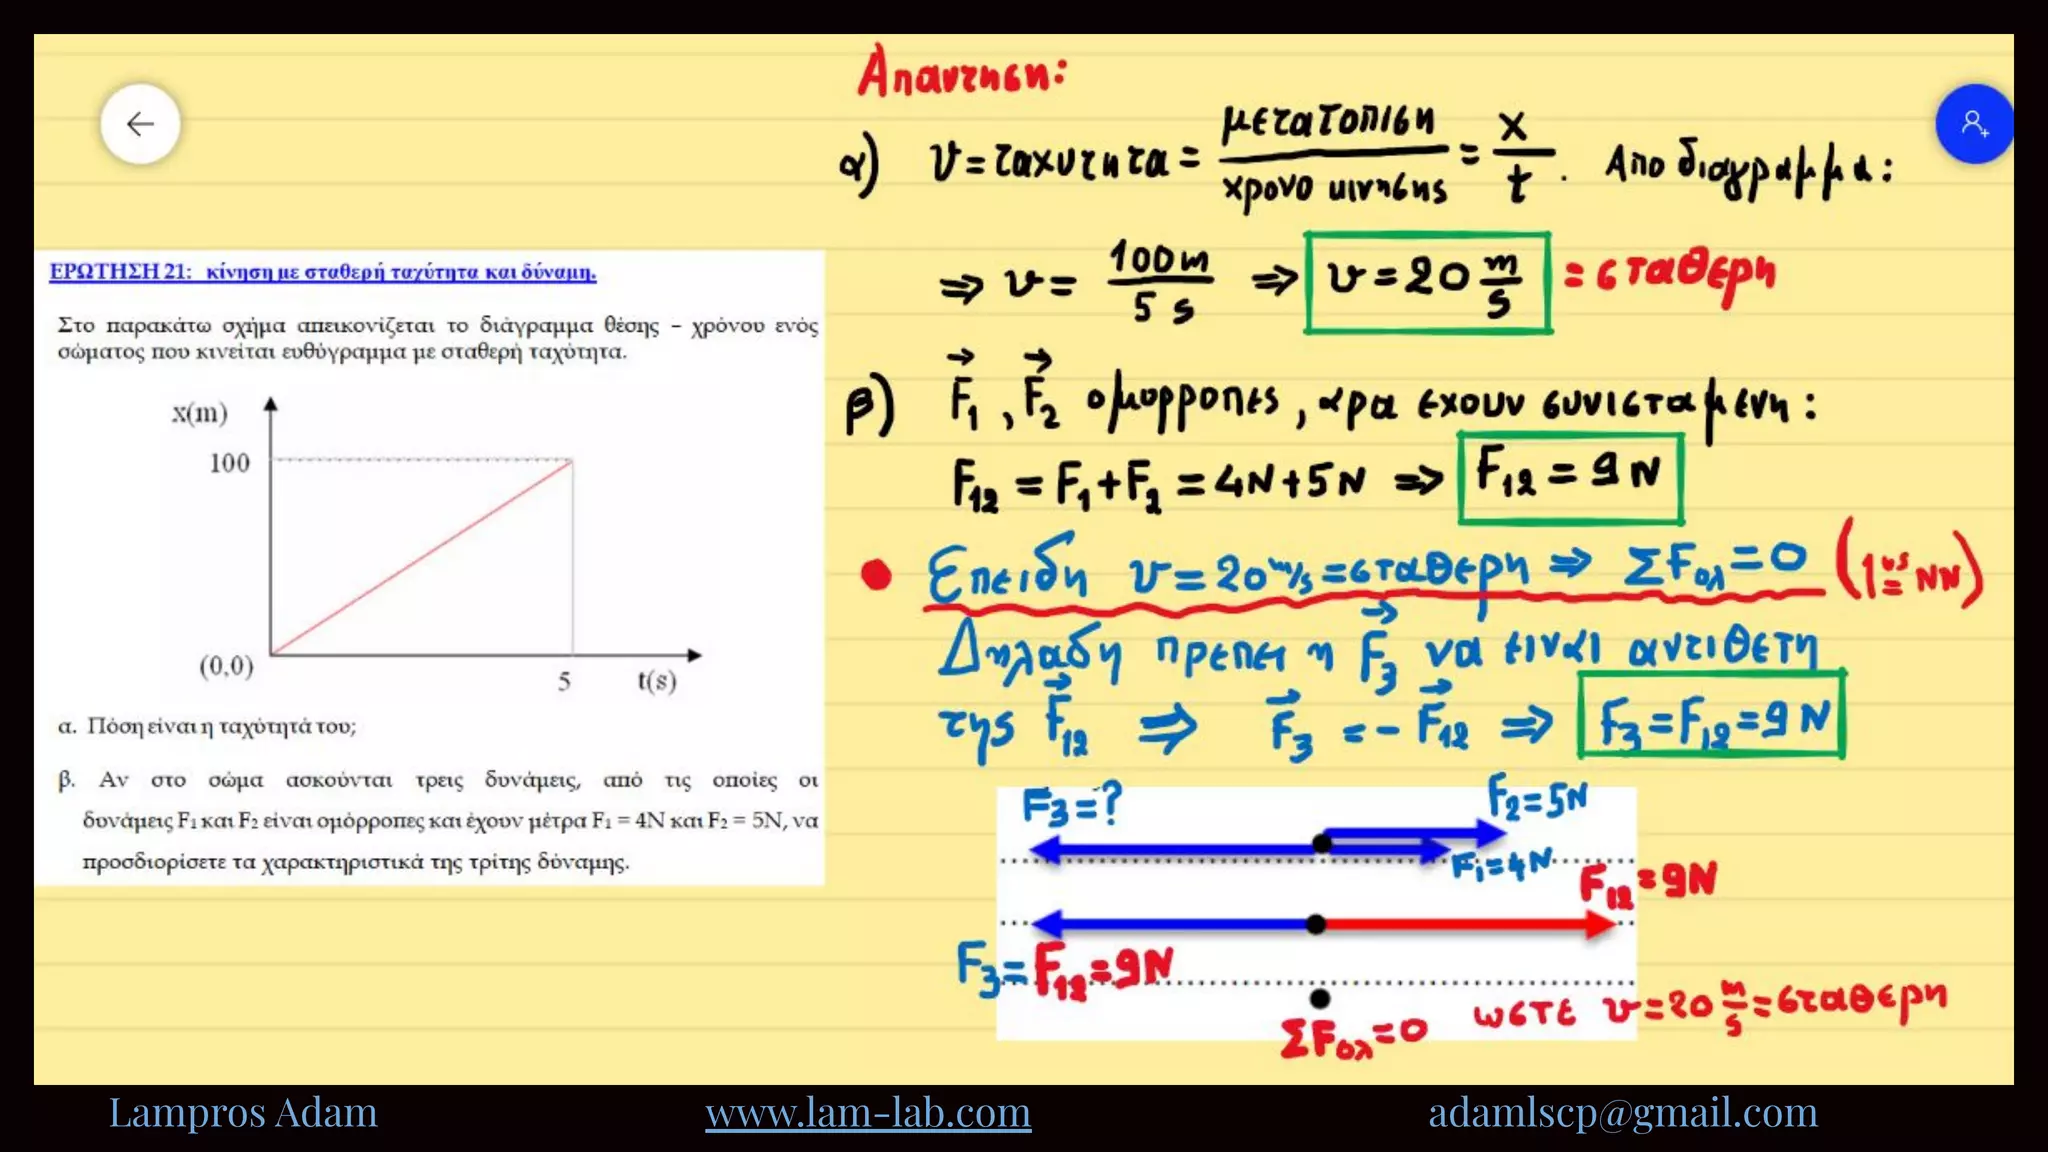 ΕΡΩΤΗΣΗ 21: κίνηση με σταθερή ταχύτητα και δύναμη.
Στο παρακάτω σχήμα απεικονίζεται το διάγραμμα θέσης – χρόνου ενός
σώματος που κινείται ευθύγραμμα με σταθερή ταχύτητα.
x(m)
100
(0,0)
5
t(s)
α. Πόση είναι η ταχύτητά του;
β. Αν στο σώμα ασκούνται τρεις δυνάμεις, από τις οποίες οι
δυνάμεις F₁ και F₂ είναι ομόρροπες και έχουν μέτρα F₁ = 4N και F₂ = 5N, να
προσδιορίσετε τα χαρακτηριστικά της τρίτης δύναμης.
Απαντηση:
α) υ = ταχυτητα = μετατοπιση / χρονο κινησης = x / t . Απο διαγραμμα:
⇒ υ = 100m / 5 s ⇒ υ = 20 m/s = σταθερη
β) F⃗₁ , F⃗₂ ομορροπες, αρα εχουν συνισταμενη:
F₁₂ = F₁ + F₂ = 4N + 5N ⇒ F₁₂ = 9N
• Επειδη υ = 20 m/s = σταθερη ⇒ ΣFολ = 0 (1ος NN)
Δηλαδη πρεπει η F⃗₃ να ειναι αντιθετη
της F⃗₁₂ ⇒ F⃗₃ = - F⃗₁₂ ⇒ F₃ = F₁₂ = 9N
F₃ = ?
F₂ = 5N
F₁ = 4N
F₁₂ = 9N
F₃ = F₁₂ = 9N
ΣFολ = 0
ωστε υ = 20 m/s = σταθερη
Lampros Adam
www.lam-lab.com
adamlscp@gmail.com